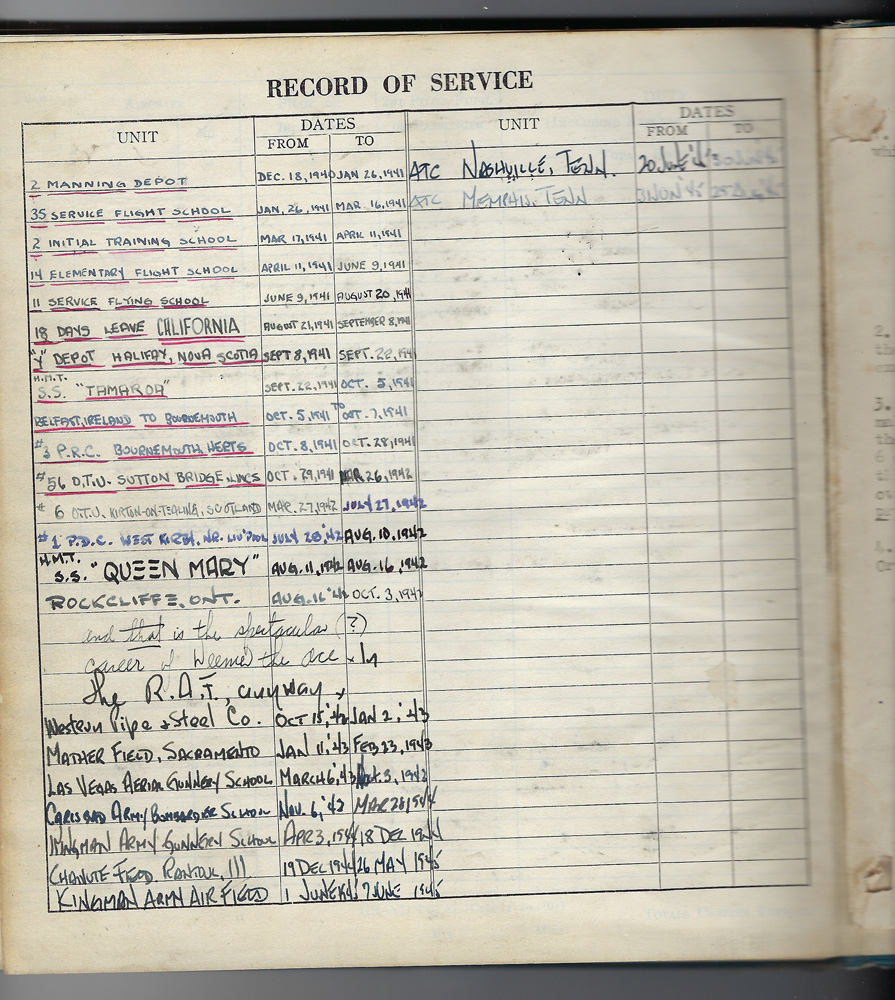 RECORD OF SERVICE
UNIT DATES UNIT DATES
FROM TO FROM TO
2 MANNING DEPOT DEC. 18, 1940 JAN 26, 1941
35 SERVICE FLIGHT SCHOOL JAN. 26, 1941 MAR. 16, 1941
2 INITIAL TRAINING SCHOOL MAR 17, 1941 APRIL 11, 1941
14 ELEMENTARY FLIGHT SCHOOL APRIL 11, 1941 JUNE 9, 1941
11 SERVICE FLYING SCHOOL JUNE 9, 1941 AUGUST 20, 1941
18 DAYS LEAVE CALIFORNIA AUGUST 21, 1941 SEPTEMBER 8, 1941
"Y" DEPOT HALIFAX, NOVA SCOTIA SEPT 8, 1941 SEPT. 22, 1941
H.M.T.
S.S. "TAMAROA" SEPT. 22, 1941 OCT. 5, 1941
BELFAST, IRELAND TO BOURNEMOUTH OCT. 5, 1941 TO OCT. 7, 1941
#3 P.R.C. BOURNEMOUTH, HERTS OCT. 8, 1941 OCT. 28, 1941
#56 O.T.U. SUTTON BRIDGE, LINCS OCT. 29, 1941 MAR. 26, 1942
#6 O.T.U. KIRTON-ON-TEALING, SCOTLAND MAR. 27, 1942 JULY 27, 1942
#1 P.D.C. WEST KIRBY, NR. LIV'POOL JULY 28, '42 AUG. 10, 1942
H.M.T.
S.S. "QUEEN MARY" AUG. 11, 1942 AUG. 16, 1942
ROCKCLIFFE, ONT. AUG. 16 '42 OCT. 3, 1942
and that is the spectacular (?)
career of Weems the ace - In
the R.A.F., anyway
Western Pipe & Steel Co. OCT 15, '42 JAN 2, '43
MATHER FIELD, SACRAMENTO JAN 11, '43 FEB 23, 1943
LAS VEGAS AERIAL GUNNERY SCHOOL MARCH 6, '43 Oct. 3, 1942
CARLSBAD ARMY BOMBARDIER SCHOOL NOV. 6, '42 MAR 28, 1944
KINGMAN ARMY GUNNERY SCHOOL APR 3, 1944 18 DEC 1944
CHANUTE FIELD RANTOUL, Ill 19 DEC 1944 26 MAY 1945
KINGMAN ARMY AIR FIELD 1 JUNE 1945 7 JUNE 1945
ATC NASHVILLE, TENN. 20 June '45
ATC MEMPHIS, TENN